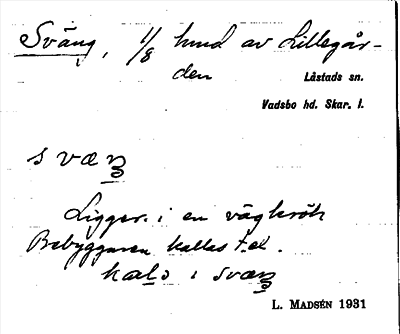 Sväng, 1/8 hmd av Lillegår-
den
Låstads sn.
Vadsbo hd. Skar. l.
svæŋ
Ligger i en vägkrök
Bebyggaren kallas t.ex.
i svæŋ
L. MADSÉN 1931